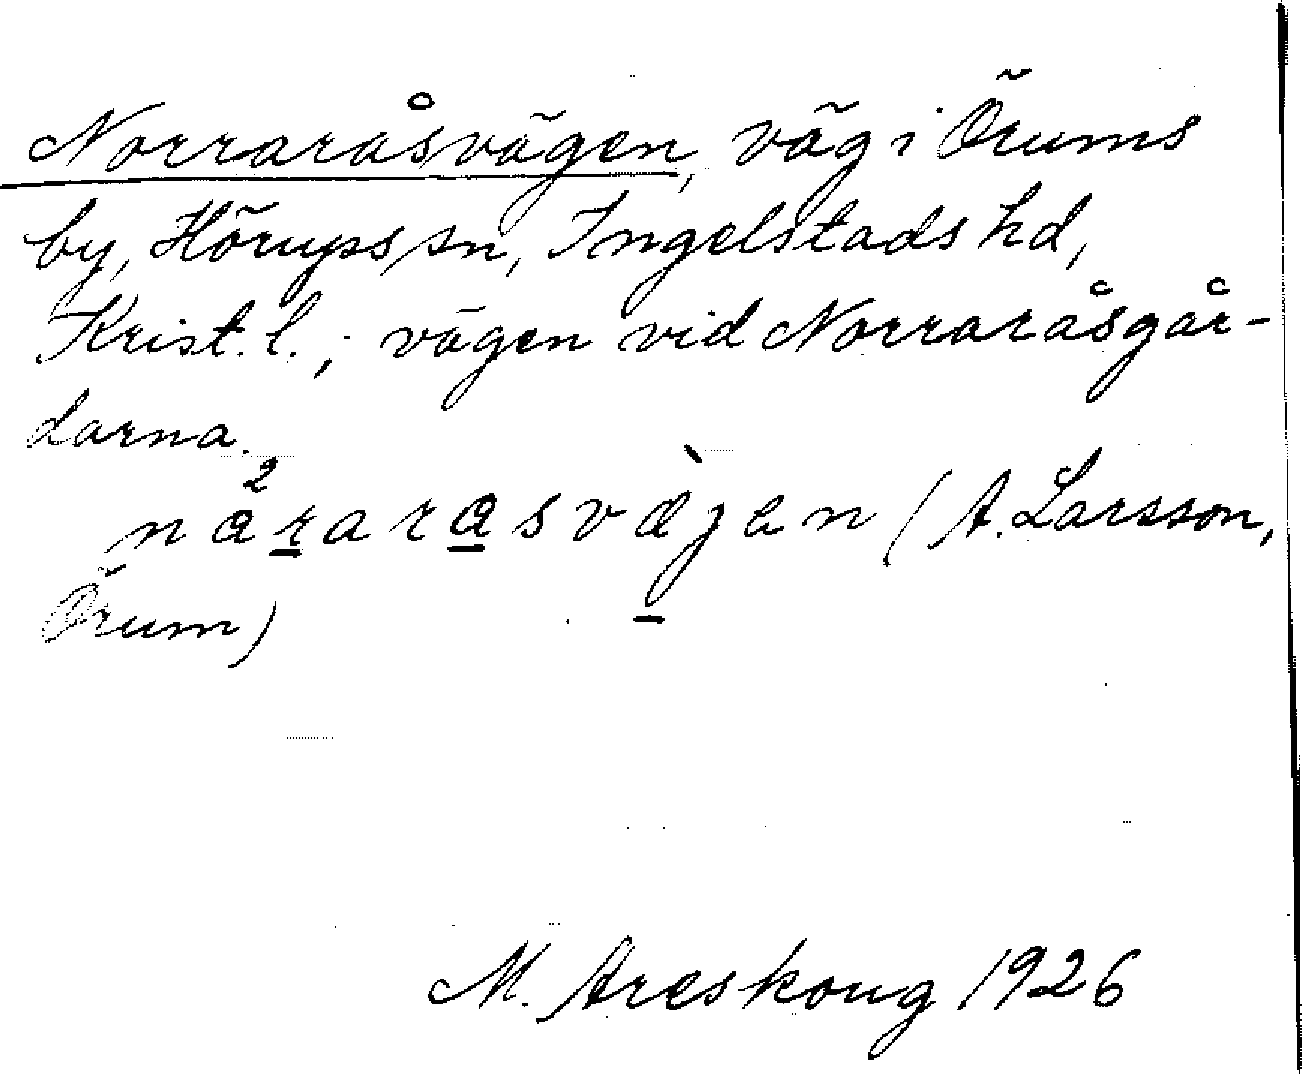 Norraråsvägen, väg i Örums
by, Hörups sn, Ingelstads hd,
Krist. l.; vägen vid Norraråsgår-
darna.
(A. Larsson,
Örum)
M. Areskoug 1926